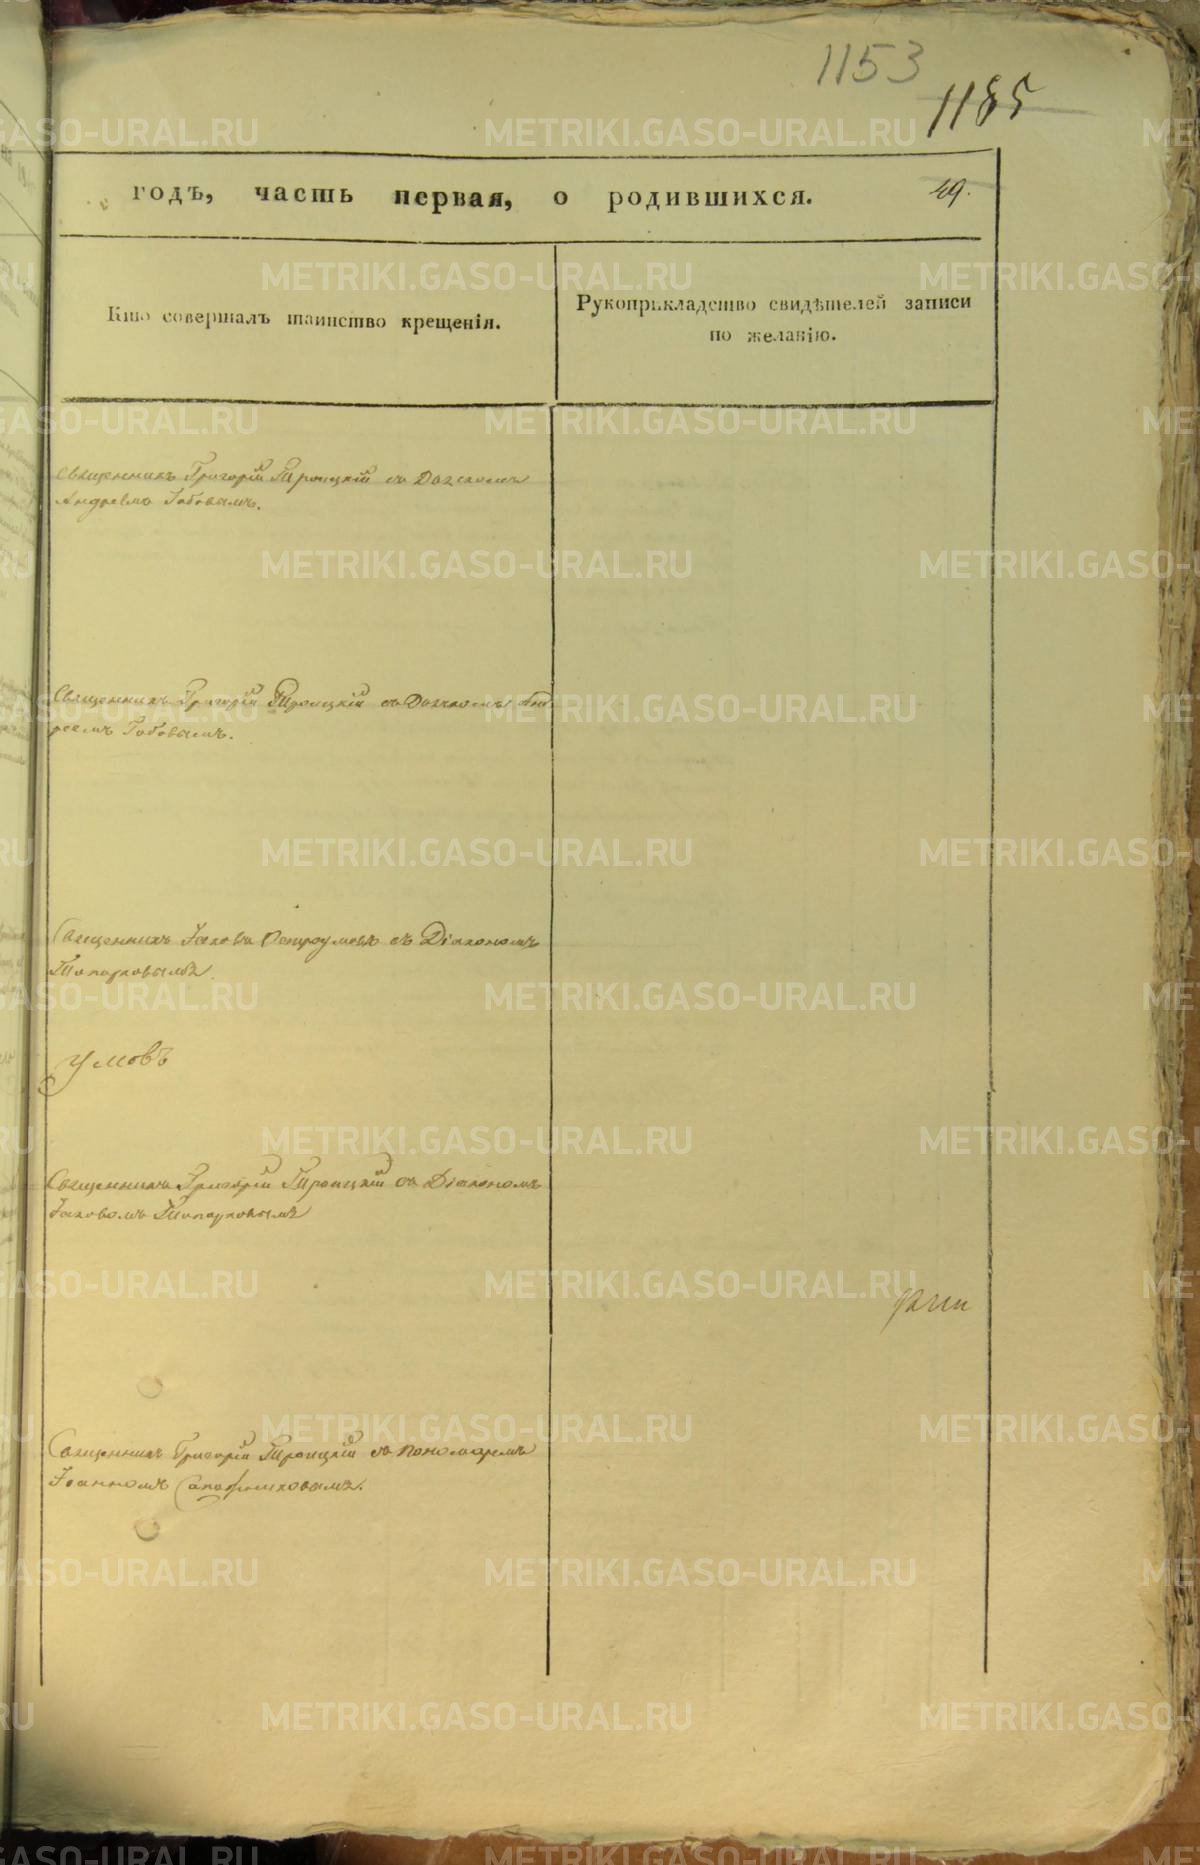 1153
1185
годъ, часть первая, о родившихся. 49.
Кто совершалъ таинство крещенія.
Рукоприкладство свидѣтелей записи
по желанію.
Священникъ Григорій Троицкій съ Дьячкомъ
Андреемъ Бобовымъ.
Священникъ Григорій Троицкій съ Дьячкомъ Анд
реемъ Бобовымъ.
Священникъ Іаковъ Остроумовъ съ Діакономъ
Топорковымъ
умовъ
Священникъ Григорій Троицкій съ Діакономъ
Іаковомъ Топорковымъ
Священникъ Григорій Троицкій съ пономаремъ
Іоанномъ Сапожниковымъ.
METRIKI.GASO-URAL.RU